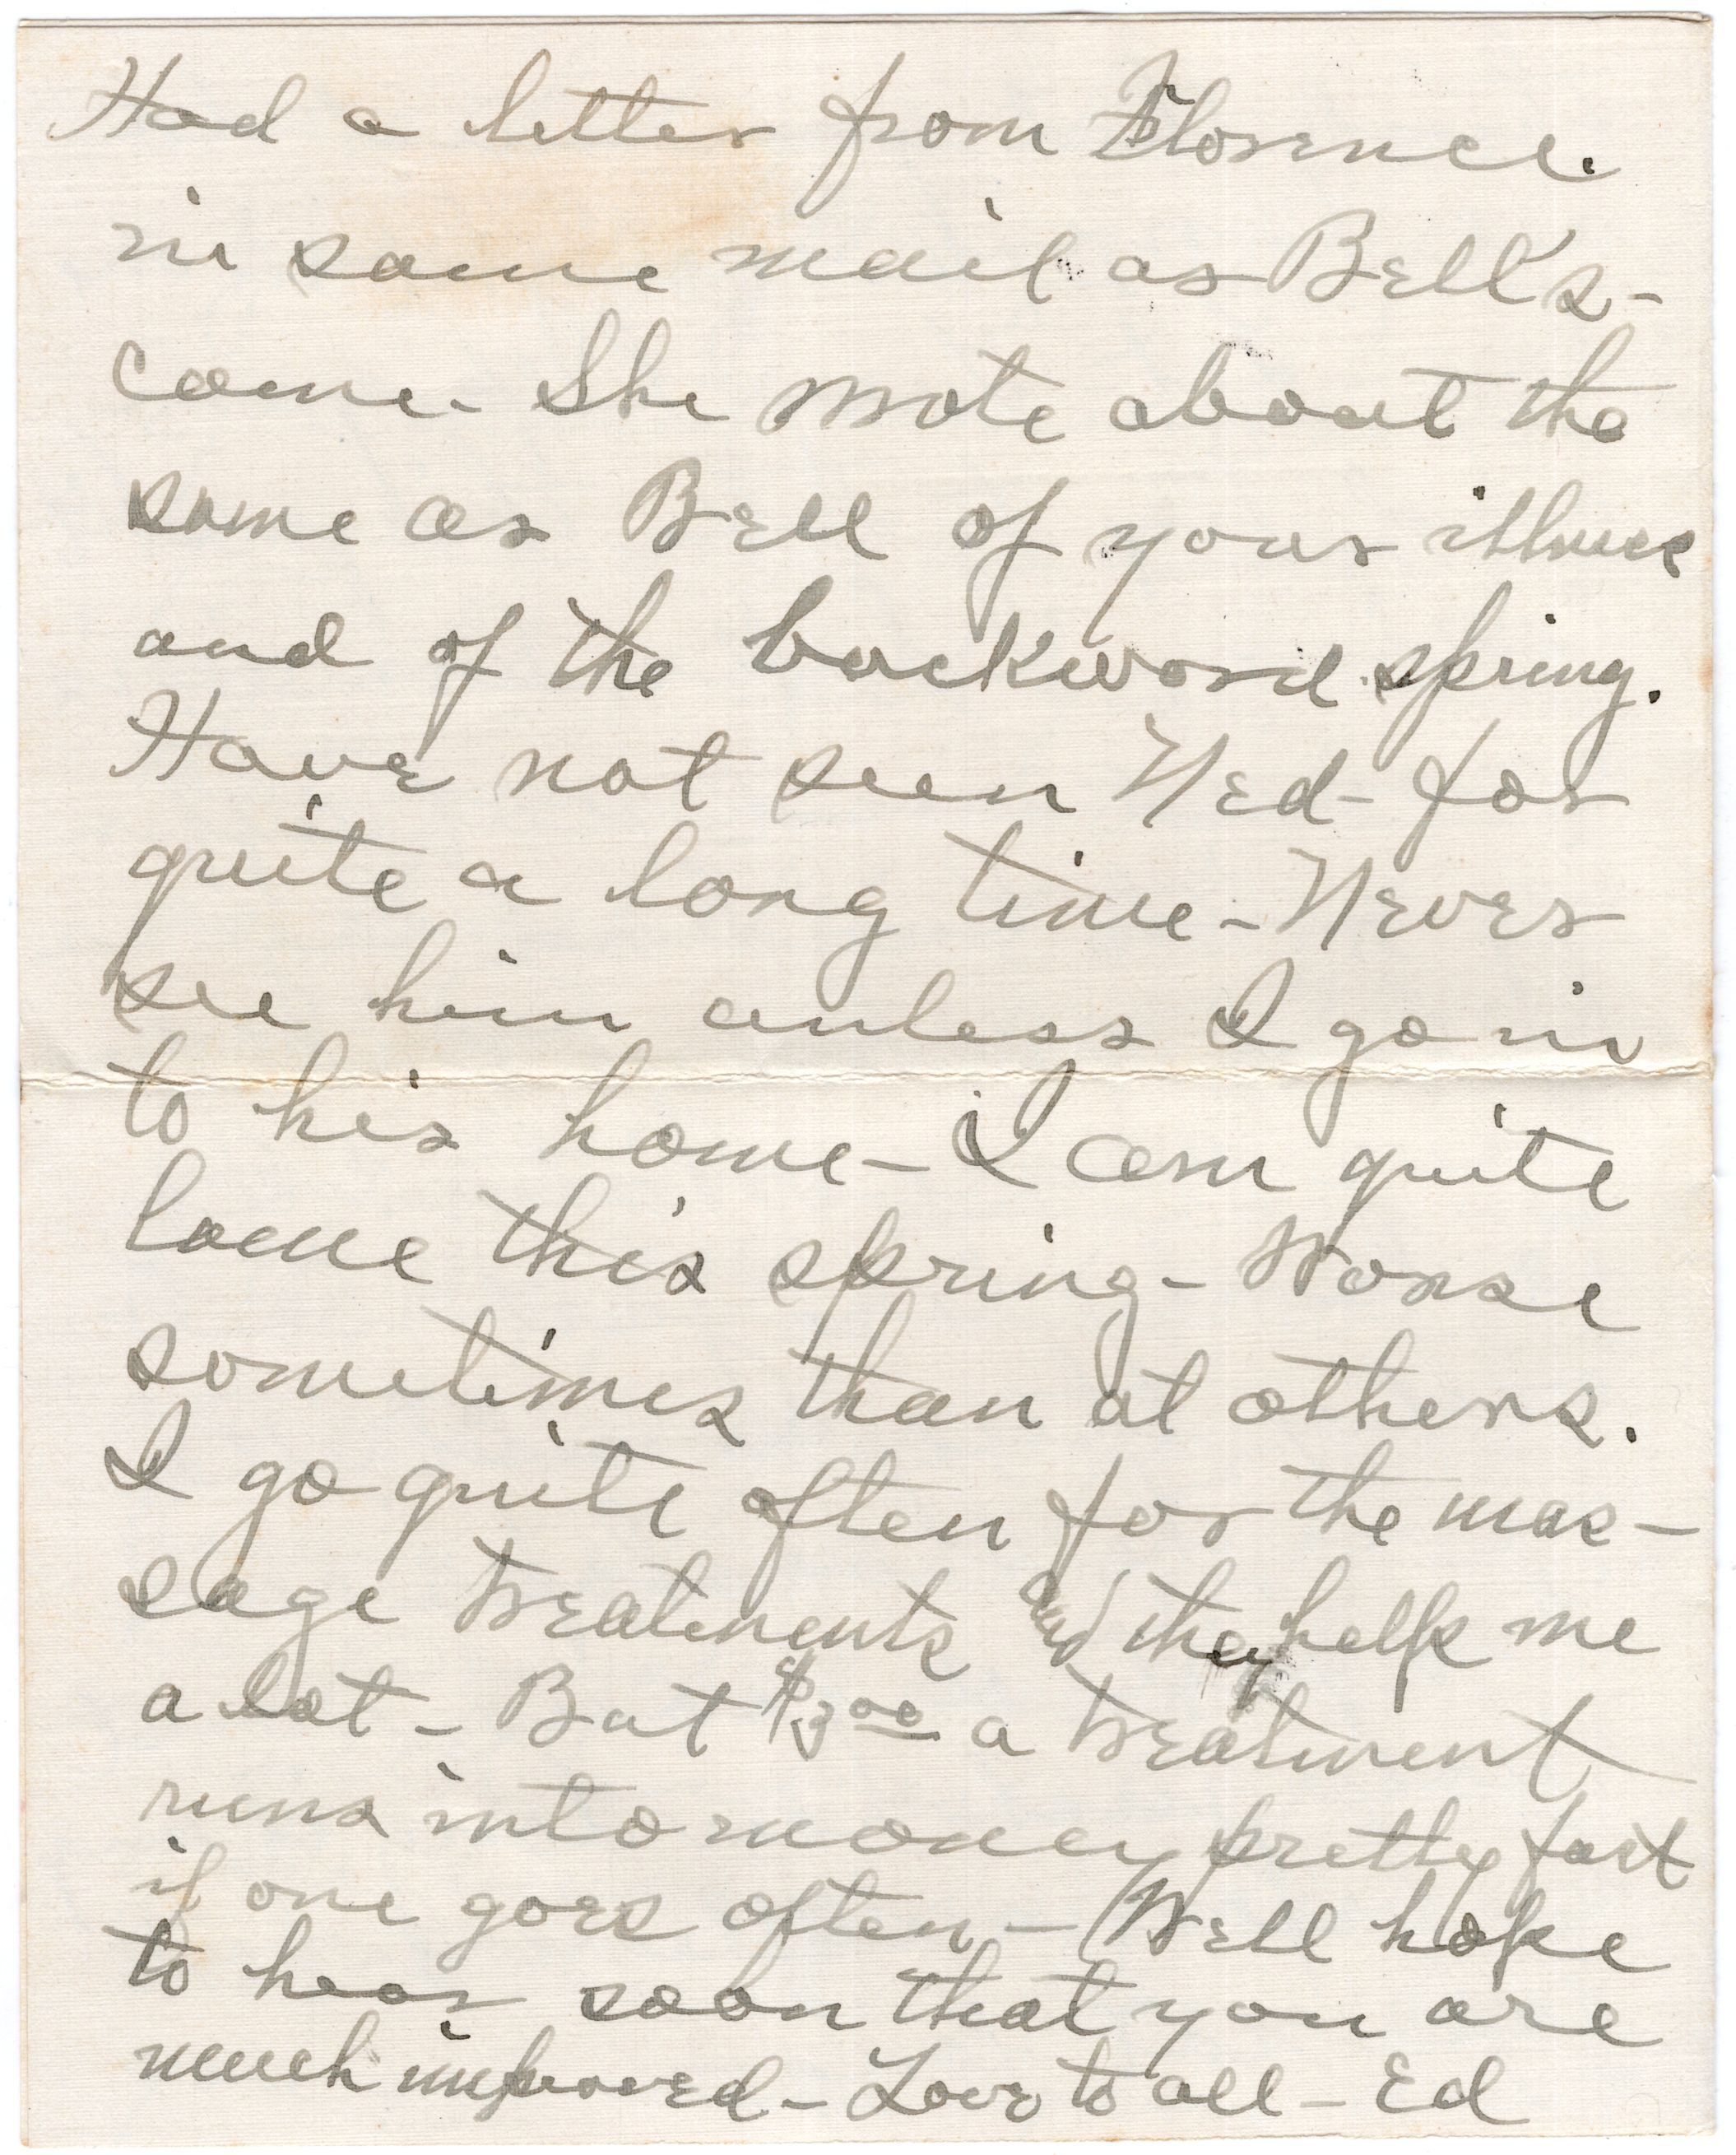 Had a letter from Florence.
in same mail as Bell's-
came- She wrote about the
same as Bell of your illness
and of the backward spring.
Have not seen Ned- for
quite a long time- Never
see him unless I go in
to his home- I am quite
lame this spring- Worse
sometimes than at others.
I go quite often for the mas-
sage treatments and they help me
a lot- But $3.00 a treatment
runs into money pretty fast
if one goes often- Well hope
to hear soon that you are
much improved- Love to all- Ed